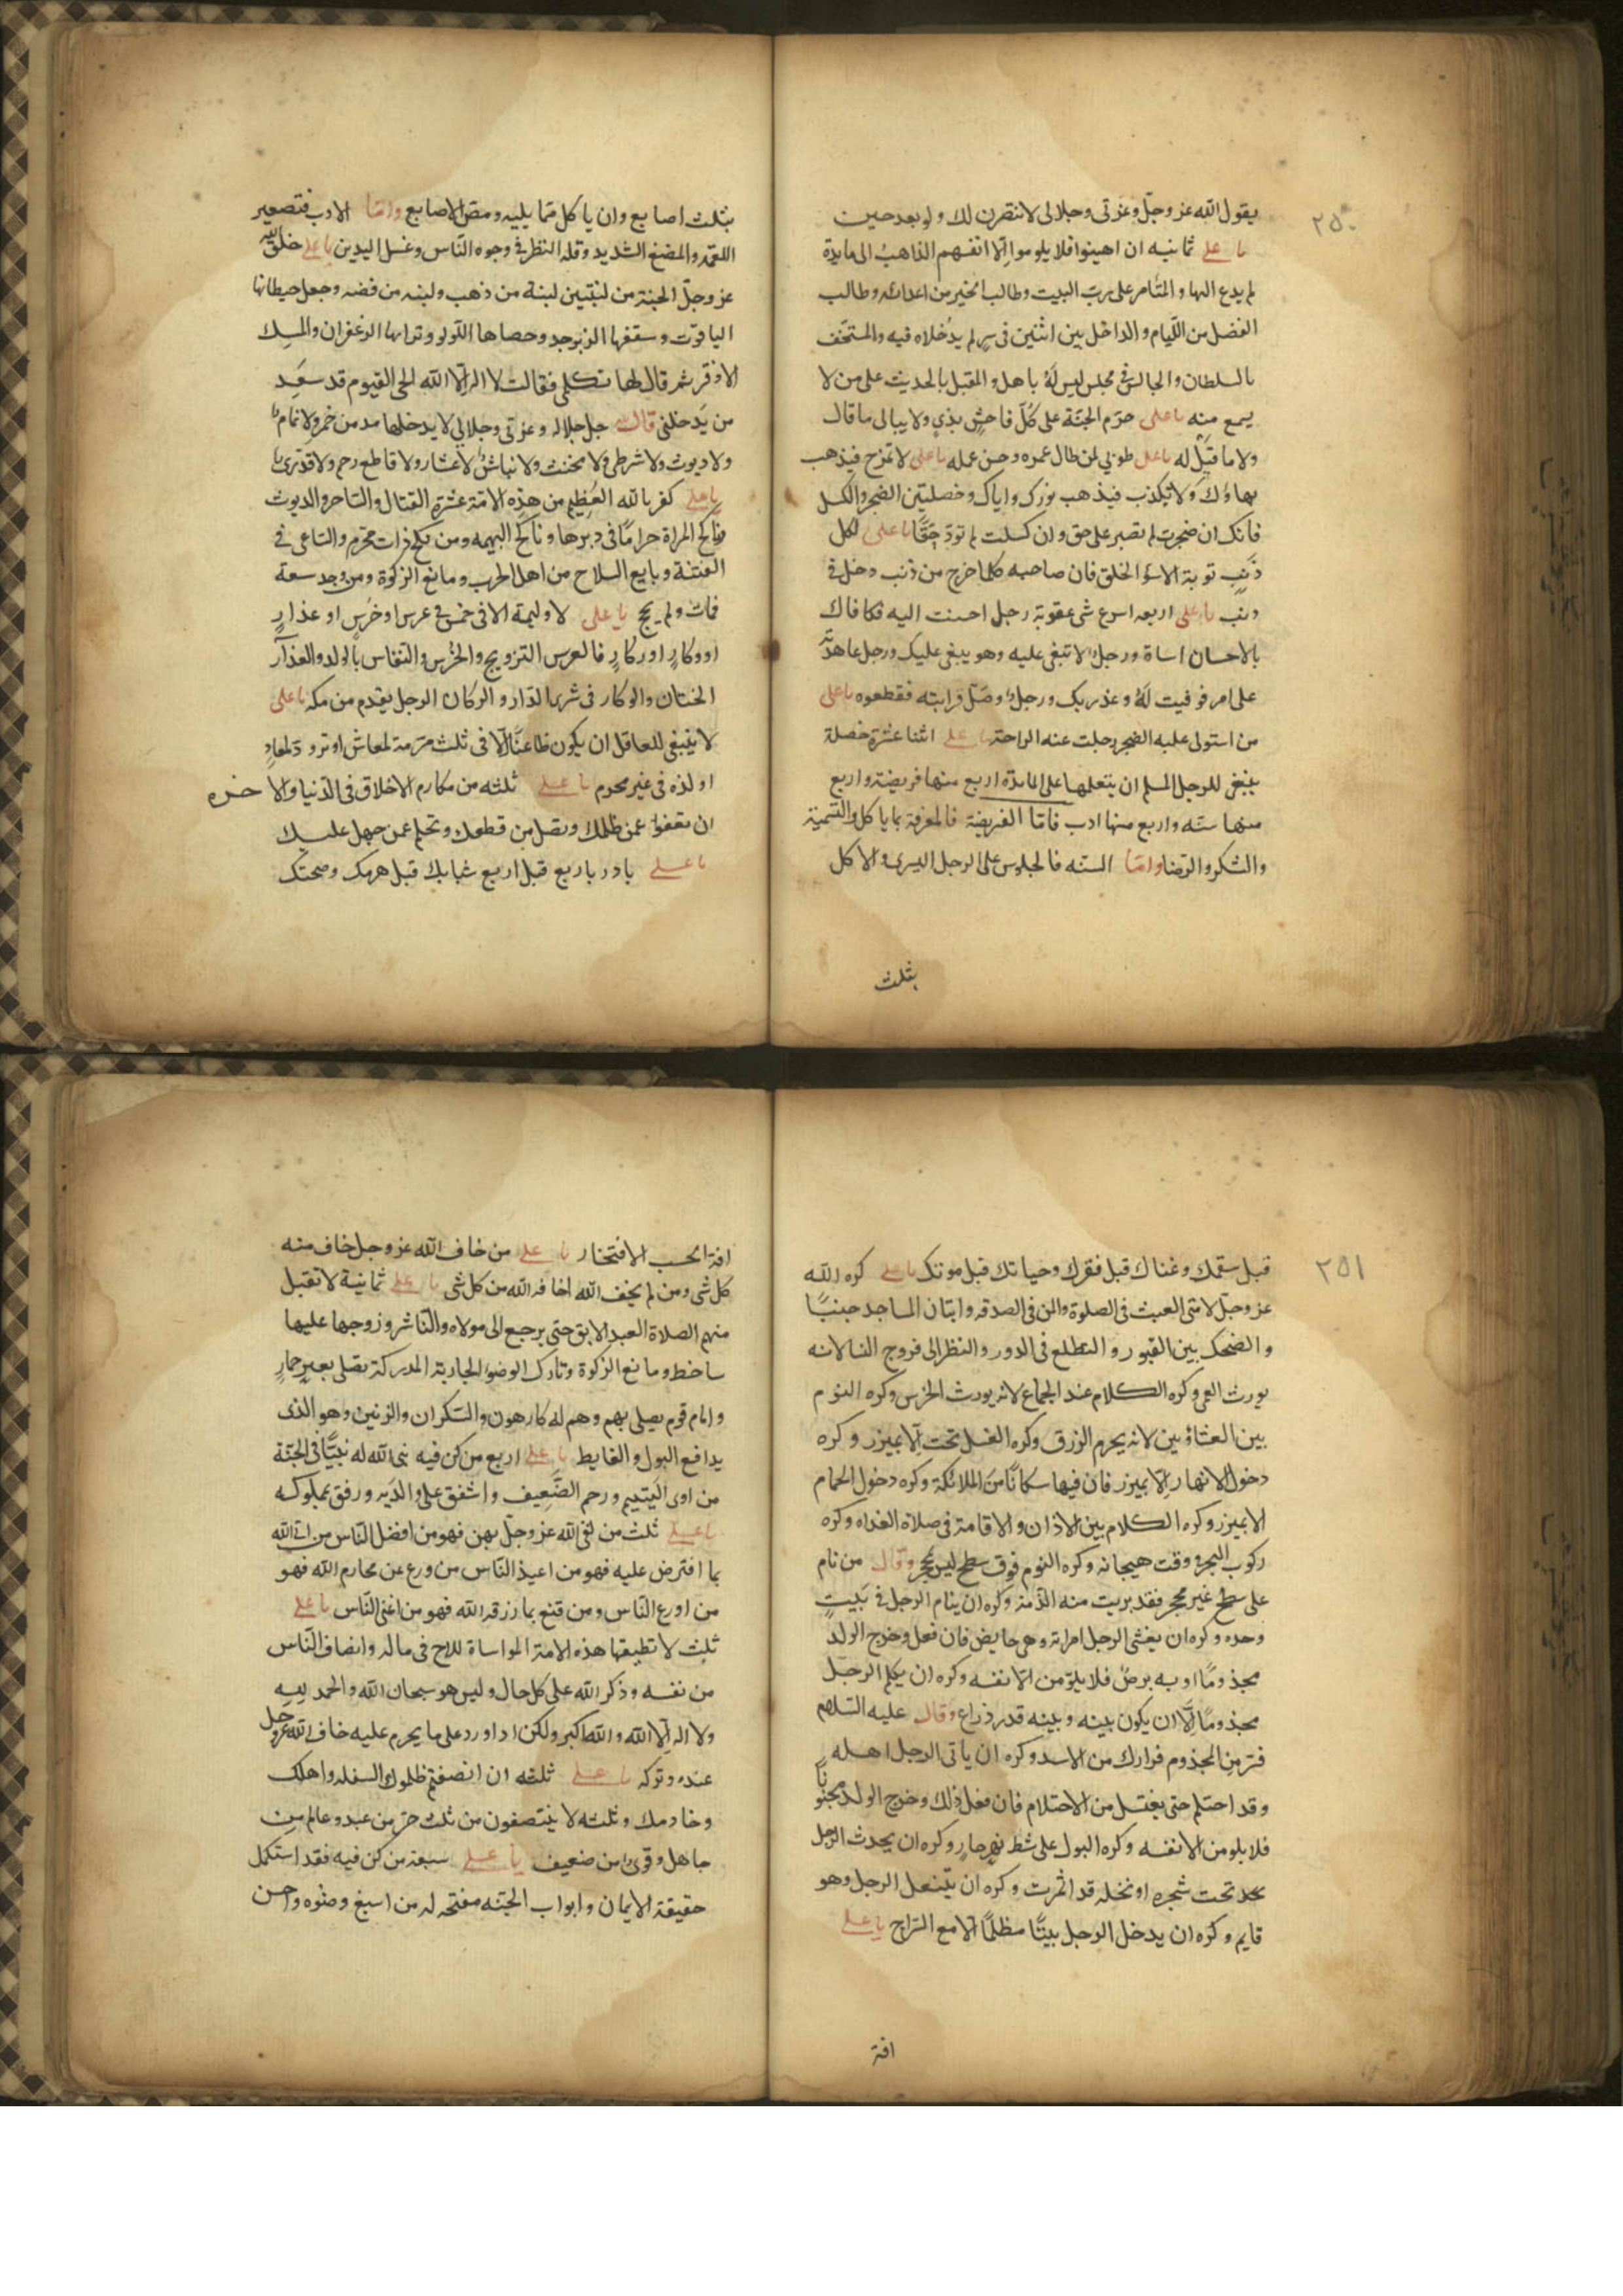 ٢٥٠
يقول الله عز وجلّ وعزتى وجلالى لانتصرن لك ولو بعد حين
يا على ثمانيه ان اهينوا فلا يلوموا الّا انفسهم الذاهب الى مايدة
لم يدع اليها والمتامر على رب البيت وطالب الخير من اعدائه وطالب
الفضل من اللئام والداخل بين اثنين فى سرٍ لم يدخلاه فيه والمستخف
بالسلطان والجالس فى مجلس ليس لهُ باهل والمقبل بالحديث على من لا
يسمع منه يا على حرّم الجنّة على كُلّ فاحشٍ بذىٍ ولا يبالى ما قال
ولا ما قيل له يا على طوبى لمن طال عمره وحسن عمله يا على لا تمزح فيذهب
بهاؤك ولا تكذب فيذهب نورك واياك وخصلتين الضجر والكسل
فانك ان ضجرت لم تصبر على حق وان كسلت لم تودّ حقًّا يا على لكل
ذنبٍ توبة الا سوٓ الخلق فان صاحبه كلما خرج من ذنب دخل فى
ذنب يا على اربعه اسرع شى عقوبة رجل احسنت اليه فكافاك
بالاحسان اساة ورجلٌ لا تبغى عليه وهو يبغى عليك ورجل عاهدته
على امر فوفيت لهُ وغدر بك ورجلٌ وصل قرابته فقطعوه يا على
من استولى عليه الضجر رحلت عنه الراحة يا على اثنا عشرة خصلة
ينبغى للرجل المسلم ان يتعلمها على المايدة اربع منها فريضة واربع
منها سنّه واربع منها ادب فامّا الفريضة فالمعرفة بما ياكل والتّسمية
والشكر والرّضا وامّا السنه فالجلوس على الرجل اليسرى والاكل
بثلث
بثلث اصابع وان ياكل ممّا يليه ومصّ الاصابع وامّا الادب فتصغير
اللقمه والمضغ الشديد وقلة النظر فى وجوه النّاس وغسل اليدين يا على خلق الله
عز وجلّ الجنة من لبنتين لبنة من ذهب ولبنه من فضه وجعل حيطانها
الياقوت وسقفها الزبرجد وحصاها اللّولو وترابها الزعفران والمسك
الاذفر ثم قال لها تكلمى فقالت لا اله الّا الله الحى القيوم قد سَعِد
من يَدخلنى قال الله جل جلاله وعزتى وجلالى لا يدخلها مدمن خمرٍ ولا نمام
ولا ديوث ولا شرطى ولا مخنث ولا نباش ولا عشار ولا قاطع رحم ولا قدرى يا
يا على كفر بالله العَظِيم من هذِه الامّة عشرة القتال والسّاحر والديوث
وناكح المراة حرامًا فى دبرها وناكح البهيمه ومن نكح ذات محرم والسّاعى فى
الفتنة وبايع السلاح من اهل الحرب ومانع الزكوة ومن وجد سعة
فمات ولم يحج يا على لا وليمة الا فى خمسٍ فى عرس او خُرُسٍ او عذارٍ
او وكارٍ او ركازٍ فالعرس التزويج والخُرس والنفاس بالولد والعذار
الختان والوكار فى شرى الدّار والركاز الرجل يقدم من مكه يا على
لا ينبغى للعاقل ان يكون ظاعنًا الّا فى ثلث مرّمة لمعاش او تزودٍ لمعادٍ
او لذه فى غير محرم يا على ثلثه من مكارم الاخلاق فى الدّنيا والاخره
ان تعفوا عمن ظلمك وتصل من قطعك وتحلم عمن جهل عليك
يا على بادر باربع قبل اربع شبابك قبل هرمك وصحتك
٢٥١
قبل سقمك وغناك قبل فقرك وحياتك قبل موتك يا على كره الله
عز وجلّ لامّتى العبث فى الصلوة والمن فى الصدقه واتيان المساجد جنبًا
والضحك بين القبور والتطلع فى الدور والنظر الى فروج النسا لانه
يورث العمى وكره الكلام عند الجماع لانه يورث الخرس وكره النوم
بين العشاؤين لانه يحرم الرزق وكره الغسل تحت الّا بميزر وكره
دخول الانهار الا بميزر فان فيها سكانًا من الملائكة وكره دخول الحمام
الا بميزر وكره الكلام بين الاذان والاقامة فى صلاة الغداه وكره
ركوب البحر فى وقت هيجانه وكره النوم فوق سطح ليس بمحجر وقال من نام
على سطح غير محجر فقد بريت منه الذّمة وكره ان ينام الرجل فى بيتٍ
وحده وكره ان يغشى الرجل امراته وهى حايض فان فعل وخرج الولد
مجذومًا او به برصٌ فلا يلومن الّا نفسه وكره ان يكلم الرجل
مجذومًا الّا ان يكون بينه وبينه قدر ذراع وقال عليه السّلام
فرّ من المجذوم فرارك من الاسد وكره ان ياتى الرجل اهله
وقد احتلم حتى يغتسل من الاحتلام فان فعل ذلك وخرج الولد مجنونًا
فلا يلومن الا نفسه وكره البول على شط نهرٍ جارٍ وكره ان يحدث الرجل
تحت شجره او نخله قد اثمرت وكره ان يتنعل الرجل وهو
قايم وكره ان يدخل الرجل بيتًا مظلمًا الّا مع السّراج يا على
افة
افة الحسب الافتخار يا على من خاف الله عز وجل خاف منه
كل شى ومن لم يخف الله اخافه الله من كل شى يا على ثمانية لا تقبل
منهم الصلاة العبد الابق حتى يرجع الى مولاه والنّاشز وزوجها عليها
ساخط ومانع الزكوة وتارك الوضوء والجارية المدركة تصلى بغير خمارٍ
وامام قوم يصلى بهم وهم له كارهون والسّكران والزنين وهو الذى
يدافع البول والغايط يا على اربع من كن فيه بنى الله له بيتًا فى الجنّة
من اوى اليَتيم ورحم الضَّعِيف واشفق على والديه ورفق بمملوكه
يا على ثلث من لقى الله عز وجلّ بهن فهو من افضل النّاس من اتى الله
بما افترض عليه فهو من اعبد النّاس من ورع عن محارم الله فهو
من اورع النّاس ومن قنع بما رزقه الله فهو من اغنى النّاس يا على
ثلث لا تطيقها هذه الامة المواساة للاخ فى ماله وانصاف النّاس
من نفسه وذكر الله على كل حال وليس هو سبحان الله والحمد لله
ولا اله الّا الله والله اكبر ولكن اذا ورد على ما يحرم عليه خاف الله عز وجل
عنده وتركه يا على ثلثه ان انصفتم ظلموك السفله واهلك
وخادمك وثلثه لا ينتصفون من ثلث حرّ من عبد وعالم من
جاهل وقوى من ضعيف يا على سبعة من كن فيه فقد استكمل
حقيقة الايمان وابواب الجنّه مفتحه له من اسبغ وضوه واحسن